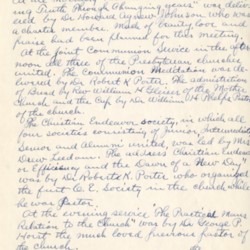 my Truth Through Changing years" was deliv-
ered by Dr Howard Agnew Johnson who was
a charter member. Much of family love and
praise had been planned for this meeting.
At the joint Communion Service in the after
noon all three of the Presbyterian churches
united. The Communion Meditation was de-
livered by Dr. Robert N. Porter. The administration
of Bread by Rev William H Gleiser of the Mother
Church and the Cup by Dr. William H Phelps Pastor
of the church.
The Christian Endeavor society, in which all
four societies consisting of Junior, Intermediate
Senior and Alumni united, was led by Mrs
Drew Leedom. The address Christian Endeav-
or Efficiency and the Dawn of a New Day"
was by Dr Roberts N. Porter who organized
the first C. E. Society in the church while
he was pastor.
At the evening service "The Practical Man's
Relation to the Church" was by Dr George P.
Horst the much loved previous pastor of
the church.